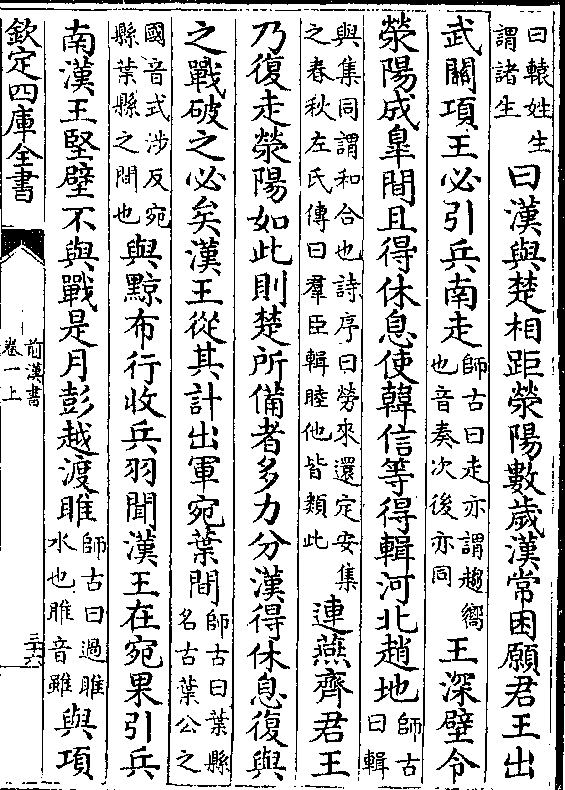 曰轅姓生
謂諸生
曰漢與楚相距滎陽數歲漢常困願君王出
武關項王必引兵南走
師古曰走亦謂趨嚮
也音奏次後亦同
王深壁令
滎陽成臯間且得休息使韓信等得輯河北趙地
師古
曰輯
與集同謂和合也詩序曰勞來還定安集
之春秋左氏傳曰羣臣輯睦他皆類此
連燕齊君王
乃復走滎陽如此則楚所備者多力分漢得休息復與
之戰破之必矣漢王從其計出軍宛葉間
師古曰葉縣
名古葉公之
國音式涉反宛
縣葉縣之間也
與黥布行收兵羽聞漢王在宛果引兵
南漢王堅壁不與戰是月彭越渡睢
師古曰過睢
水也睢音雖
與項
欽定四庫全書
前漢書
卷一上
三十六